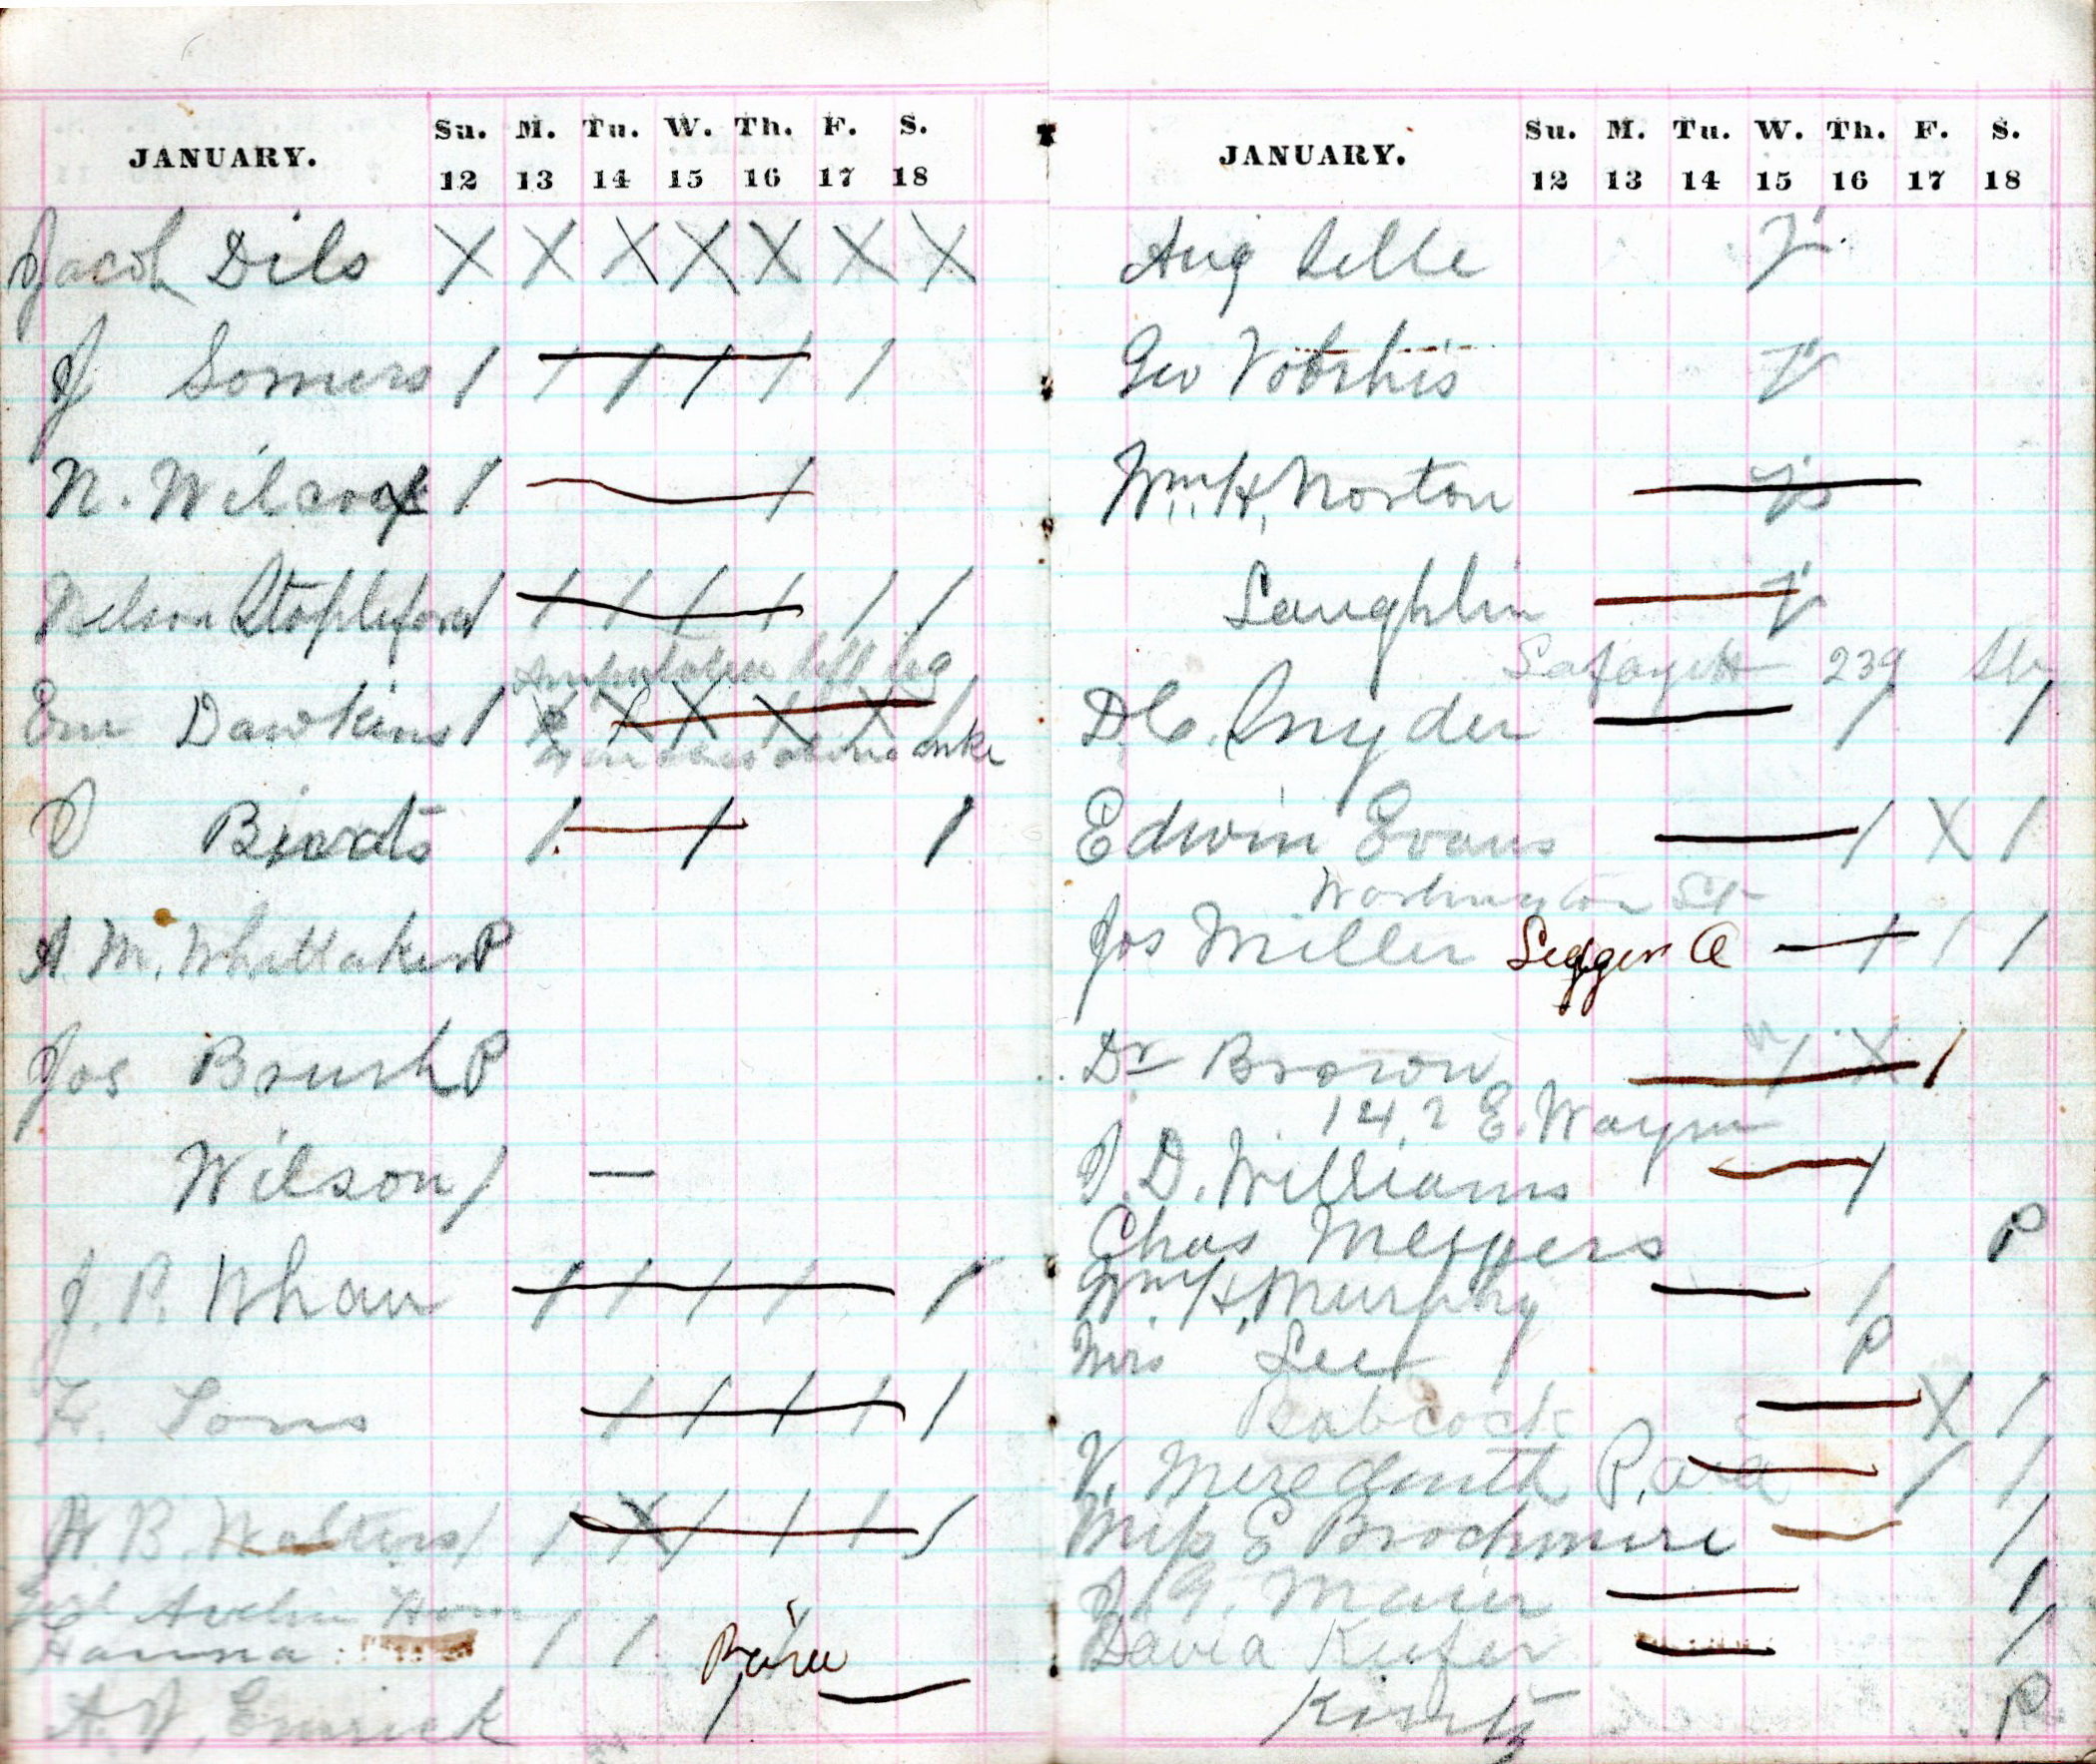 JANUARY. Su. M. Tu. W. Th. F. S.
12 13 14 15 16 17 18
Jacob Dils X X X X X X X
J Somers / / / / / /
N. Wilcox / /
Nelson Stapleford / / / / / / /
Amputation left leg
Em Dawkins / X X X X X /
above
/ / /
A. M. Whittaker P
Jos Brush P
Wilson / —
J. P. Whan / / / / /
H. Sons / / / / /
H. B. Walters / / X / / / /
Hanna / /
A. J. Emrick
JANUARY. Su. M. Tu. W. Th. F. S.
12 13 14 15 16 17 18
Aug Selle
Geo
Wm. H. Norton
Laughlin
Lafayette 239
D. C. Snyder / /
Edwin Evans / X /
Washington St
Jos Miller Ledger A / / /
Dr Brown / X /
142 E. Wayne
J. D. Williams /
Chas Meyers P
Wm. H. Murphy /
Mrs Lee P
Babcock X /
V. Meredith / /
Miss E /
J. G. Maier /
David Kiefer /
P